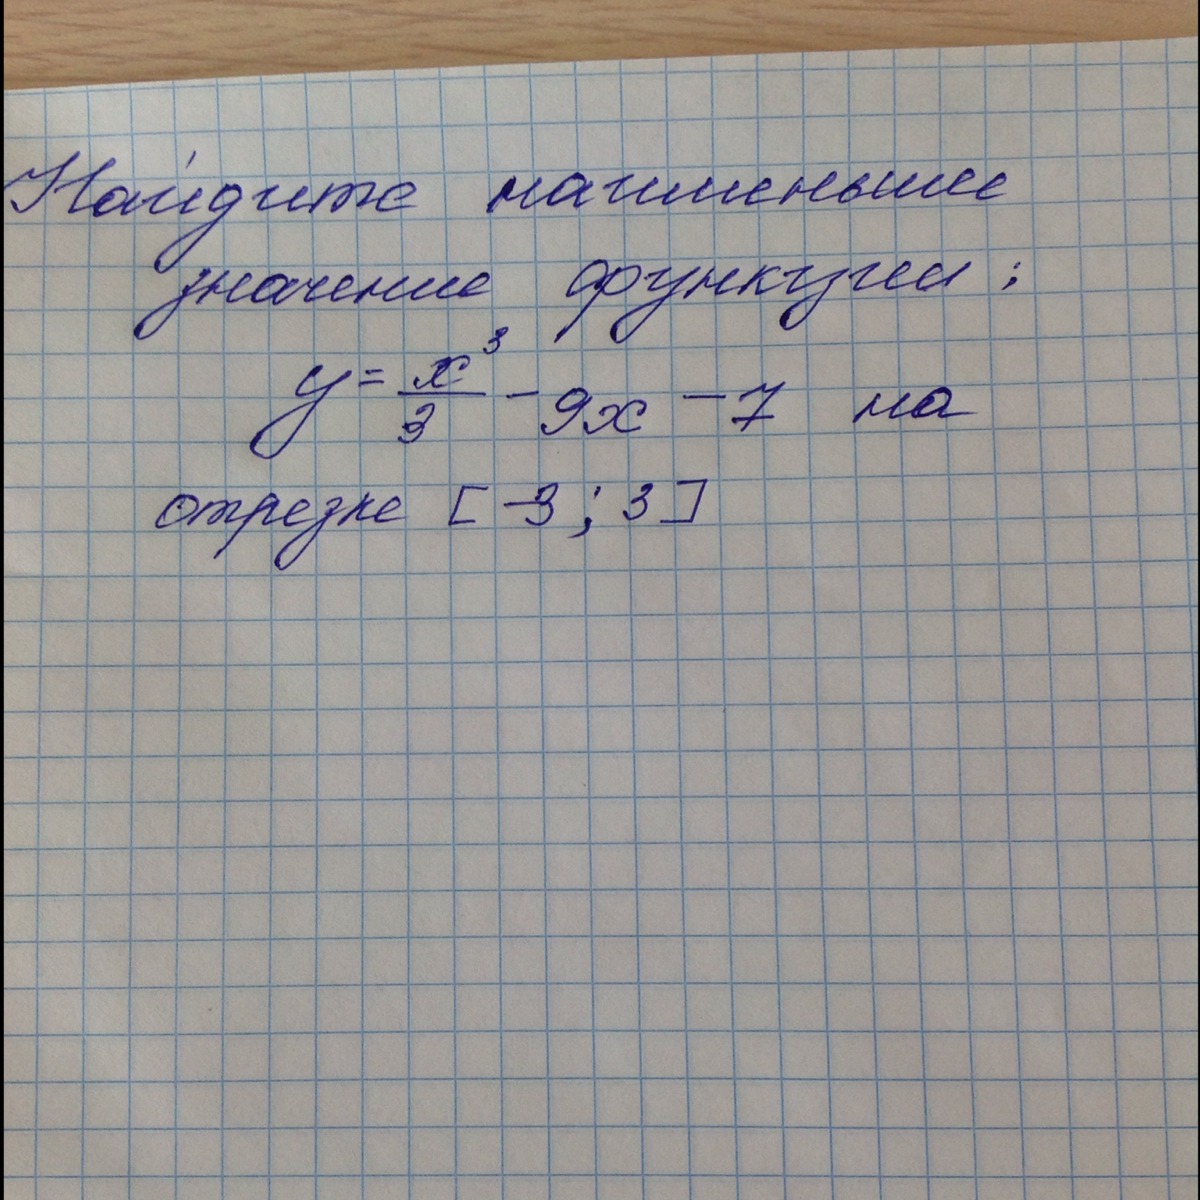 Найдите наименьшее
значение функции:
y = x³/3 - 9x - 7 на
отрезке [-3; 3]